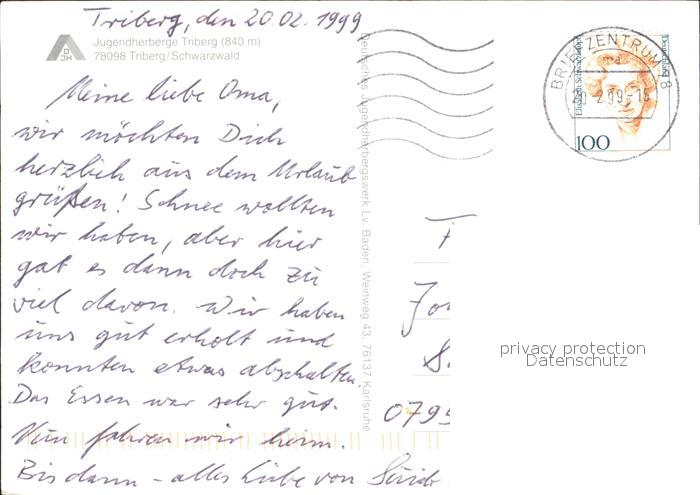 Triberg, den 20.02.1999
Jugendherberge Triberg (840 m)
78098 Triberg/Schwarzwald
DJH
Meine liebe Oma,
wir möchten Dich
herzlich aus dem Urlaub
grüßen! Schnee wollten
wir haben, aber hier
gab es dann doch zu
viel davon. Wir haben
uns gut erholt und
konnten etwas abschalten.
Das Essen war sehr gut.
Nun fahren wir heim.
Bis dann - alles Liebe von
Deutsches Jugendherbergswerk Lv. Baden, Weinweg 43, 76137 Karlsruhe
BRIEFZENTRUM
20.2.99-15
Deutschland
100
privacy protection
Datenschutz
0795